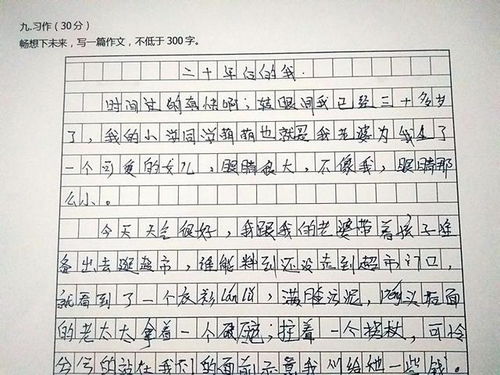 九.习作（30分）
畅想下未来，写一篇作文，不低于300字。
二十年后的我.
时间过的真快啊；转眼间我已经三十多岁
了，我的小学同学萌萌也就是我老婆为我生了
一个可爱的女儿，眼睛很大，不像我，眼睛那
么小。
今天天气很好，我跟我的老婆带着孩子准
备出去逛超市，谁能料到还没走到超市门口，
就看到了一个衣衫lán lǚ，满脸污泥，头后面
的老太太拿着一个破碗；拄着一个拐杖，可怜
兮兮的站在我们的面前示意我们给他一些钱。